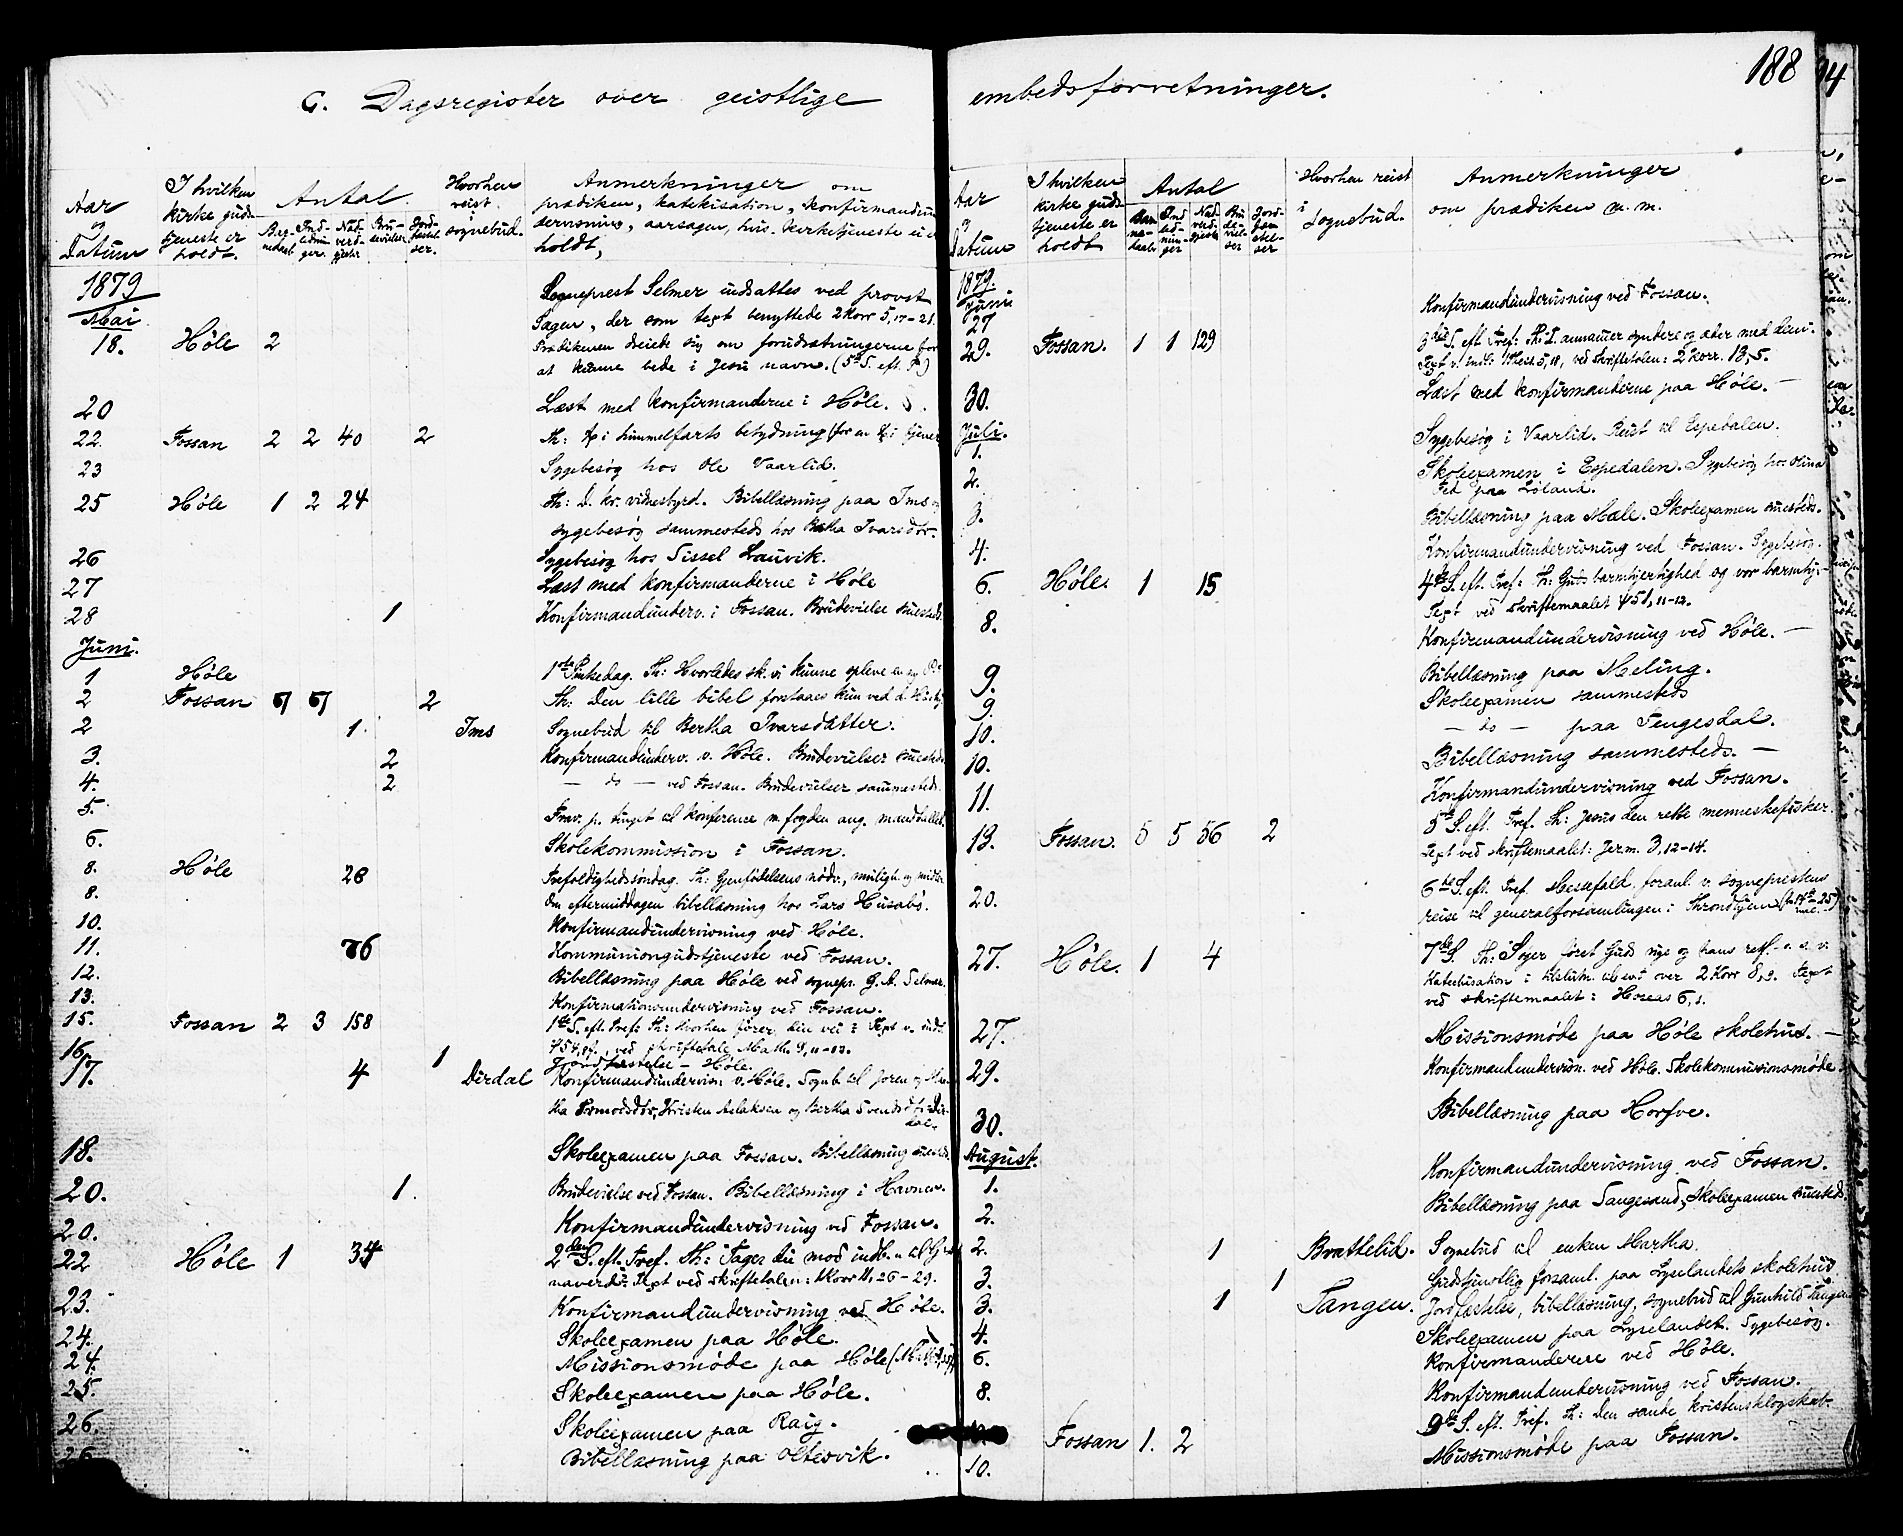 188
G. Dagsregister over geistlige
Aar og Datum
I hvilken kirke guds tjeneste er holdt.
Antal
Hvorhen reist i sognebud.
Anmerkninger om prædiken, katekisation, konfirmandun dervisning, aarsager, hvis kirketjeneste ei er holdt,
1879
Mai
Sogneprest Selmer indsattes ved provst
Sagen, der som text benyttede 2 Korr 5, 17-21.
18. Høle 2 Prædikenen dreiede sig om forudsætningerne for
at kunne bede i Jesu navn. (5te S. eft. P.)
20 Læst med konfirmanderne i Høle.
22. Fossan 2 2 40 2 Th: himmelfarts betydning
23 Sygebesøg hos Ole Vaarlid.
25 Høle 1 2 24 Th: D. kr. vidnesbyrd. Bibellæsning paa Ims
sygebesøg sammesteds hos Bertha Ivarsdtr.
26 Sygebesøg hos Sissel Lauvik.
27 Læst med konfirmanderne i Høle
28 1 Konfirmandunderv. i Fossan. Brudevielse
Juni.
1 Høle 1ste Pinkedag. Th: Hvorledes sk. vi kunne opleve en ny
2 Fossan 2 Th: Den lille bibel forstaaes kun ved d.
2 1. Ims Sognebud til Bertha Ivarsdatter.
3. 2 Konfirmandunderv. v. Høle. Brudevielser
4. 2 — do — ved Fossan. Brudevielser sammesteds.
5. til konference m. fogden ang. mandtallet.
6. Skolekommission i Fossan.
8. Høle 28 Trefoldighedssøndag. Th: Gjenfødelsens nødv., muligh. og
8. Om eftermiddagen bibellæsning hos Lars Husabø.
10. Konfirmandundervisning ved Høle.
11. 76 Kommuniongudstjeneste ved Fossan.
12. Bibellæsning paa Høle ved sognepr. G. A. Selmer.
13. Konfirmationsundervisning ved Fossan.
15. Fossan 2 3 158 1ste S. eft. Tref: Th: Hvorhen fører din vei? Text v. indl.
ved skriftetale Math. 9, 11-13.
16. 1 Jordfæstelse – Høle.
17. 4 Dirdal Konfirmandundervisn. v. Høle. Sogneb. til
Kristen Aslaksen og Bertha Svendsdtr i Dirdal.
18. Skoleexamen paa Fossan. Bibellæsning
20. 1. Brudevielse ved Fossan. Bibellæsning i Havnen.
20. Konfirmandundervisning ved Fossan.
22 Høle 1 34 2den S. eft. Tref. Th: Tager du mod indb. til
naverd: Text ved skriftetalen: 1 Korr 11, 26-29.
23. Konfirmandundervisning ved Høle.
24. Skoleexamen paa Høle.
24. Missionsmøde paa Høle
25. Skoleexamen paa Høle.
26. Skoleexamen paa Raig.
26 Bibellæsning paa Oltesvik.
embedsforretninger.
Aar og Datum
I hvilken kirke guds tjeneste er holdt
Antal
Hvorhen reist i sognebud.
Anmerkninger om prædiken m. m.
1879.
Juni
27 Konfirmandundervisning ved Fossan.
29. Fossan. 1 1 129 3die S. eft. Tref: Th: J. annammer syndere og æder med dem.
Text v. indl: 1 Thess. 5, 18, ved skriftetalen: 2 Korr. 13, 5.
30. Læst med konfirmanderne paa Høle. —
Juli.
1. Sygebesøg i Vaarlid. Reist til Espedalen.
2. Skoleexamen i Espedalen. Sygebesøg hos Olina
paa Løland.
3. Bibellæsning paa Mæle. Skoleexamen
4. Konfirmandundervisning ved Fossan. Sygebesøg.
6. Høle. 1 15 4de S. eft. Tref: Th: Guds barmhjertighed og vor barmhj.
Text ved skriftemaalet ψ 51, 11-12.
8. Konfirmandundervisning ved Høle. —
9. Bibellæsning paa Meling.
9. Skoleexamen sammesteds
10. — do — paa Tengesdal.
10. Bibellæsning sammesteds. —
11. Konfirmandundervisning ved Fossan.
13. Fossan. 5 5 56 2 5te S. eft. Tref. Th: Jesus den rette menneskefisker.
Text ved skriftemaalet: Jerm. 3, 12-14.
20. 6te S. eft. Tref. Messefald foranl. v. sogneprestens
reise til generalforsamlingen i Throndhjem
27. Høle. 1 4 7de S. Th: Søger først Guds rige og hans retf. o. s. v.
Katechisation i tilslutn. til ev. over 2 Korr 8, 9. Text
ved skriftemaalet: Hoseas 6, 1.
27. Missionsmøde paa Høle skolehus. —
29. Konfirmandundervisn. ved Høle. Skolekommissionsmøde
30. Bibellæsning paa Horfve.
August.
1. Konfirmandundervisning ved Fossan.
2. Bibellæsning paa Sangesand, Skoleexamen
2. 1 Brattelid. Sognebud til enken Martha.
3. 1 Gudstjenstlig forsaml. paa Lyselandets skolehus
3. 1 Tangen. Jordfæstelse, bibellæsning, sognebud til Gunhild Tangen
4. Skoleexamen paa Lyselandet. Sygebesøg.
6. Konfirmanderne ved Høle.
8. Konfirmandundervisning ved Fossan.
Fossan 1. 2 9de S. eft. Tref. Th: Den sande kristensklogskab.
10. Missionsmøde paa Fossan.